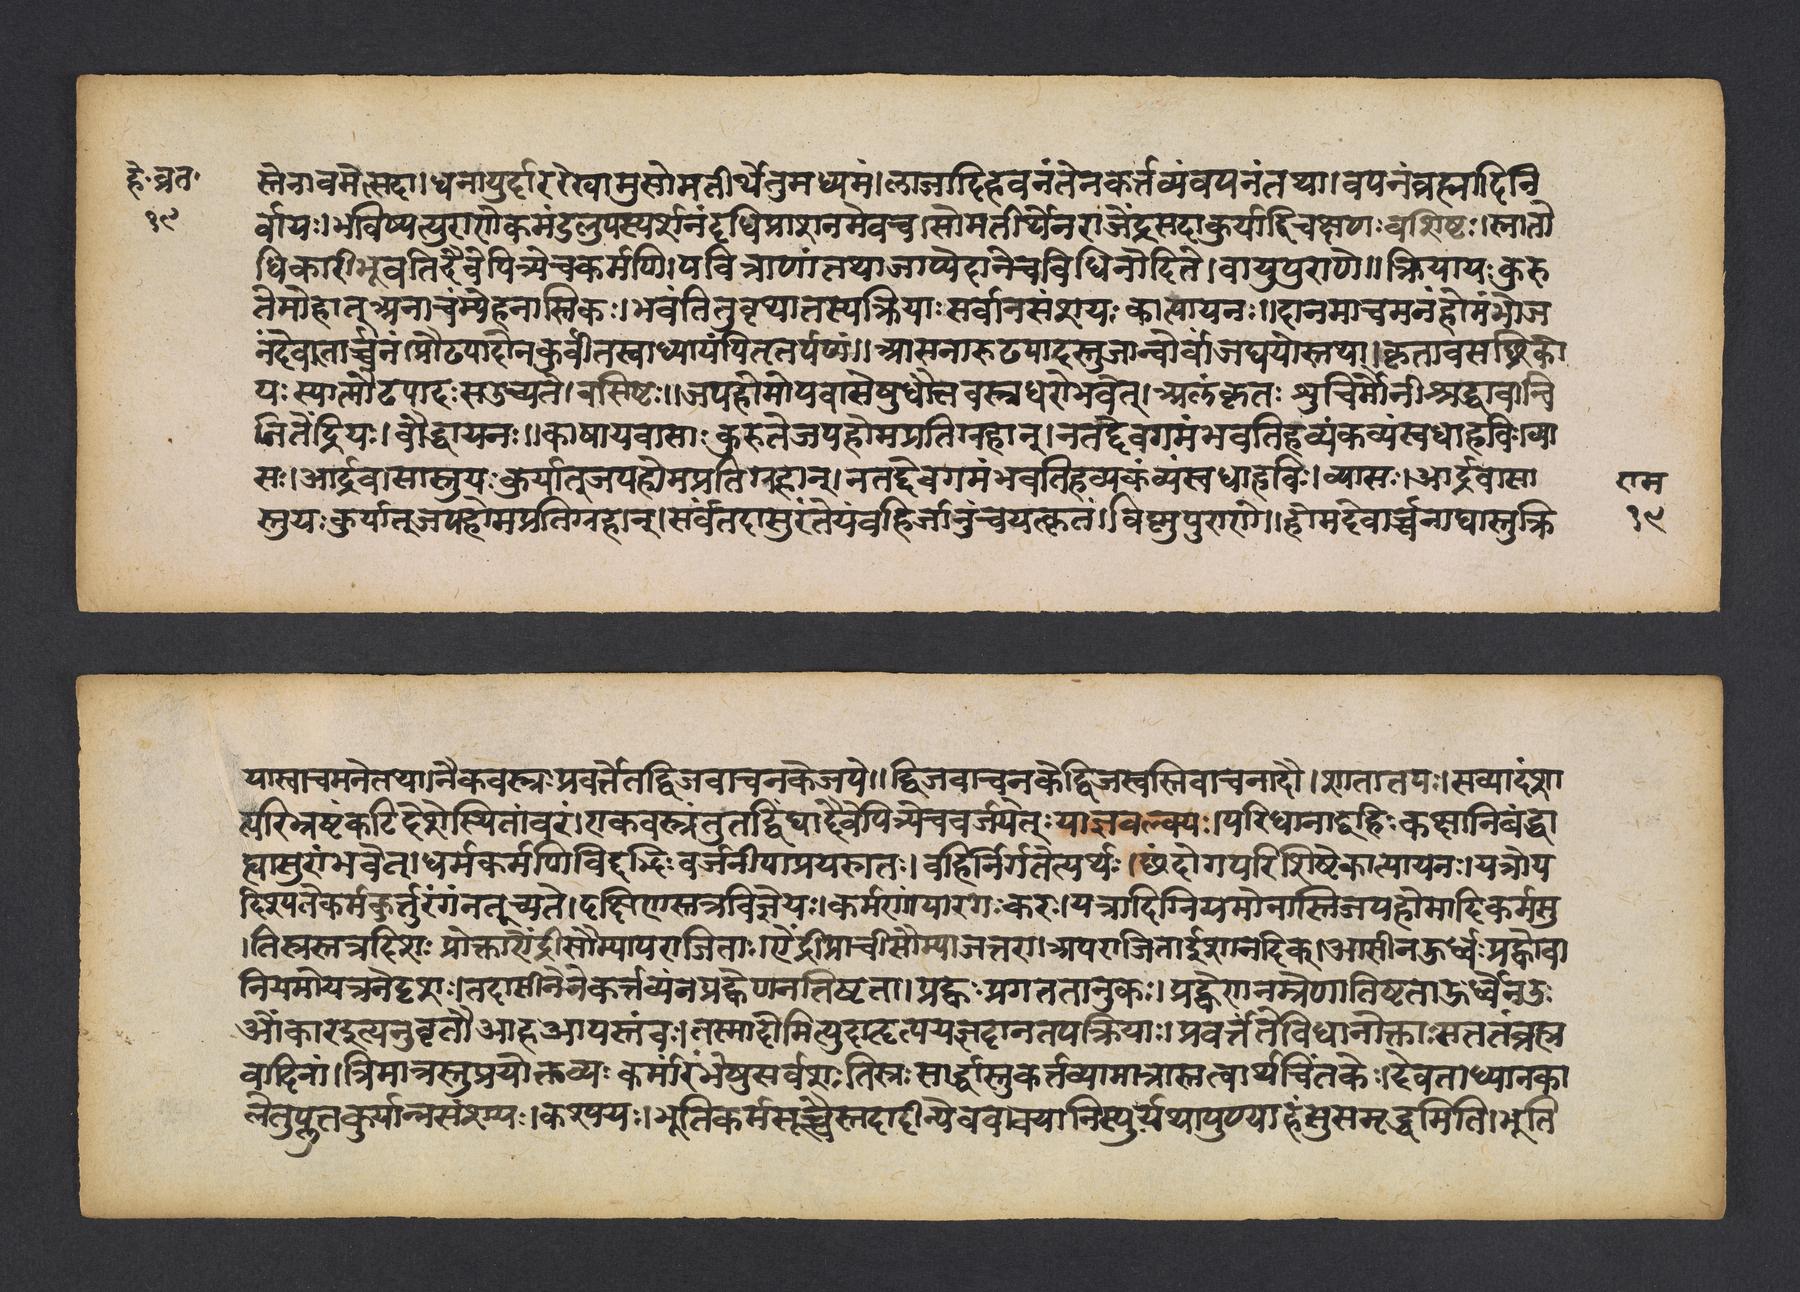 हे.व्रत.
१९
स्तेनावमेत्सदा।धनायुर्द्दाररेखामुसोमतीर्थेतुमध्यमं।लाजादिहवनंतेनकर्त्तव्यंवपनंतथा।वपनंव्रह्नादिनि
र्वायः।भविष्यत्पुराणेकमंडलुपस्पर्शनंदधिप्राशनमेवच।सोमतीर्थेनराजेंद्रसदाकुर्याद्विचक्षणःवशिष्टः।स्नातो
धिकारीभवतिदैवेपित्र्येचकर्मणि।पवित्राणांतथाजाप्येदानेचविधिनोदिते।वायुपुराणे॥क्रियायःकुरु
तेमोहात्अनाचंम्येहनास्तिकः।भवंतितुवृथातस्यक्रियाःसर्वानसंशयःकात्यायनः॥दानमाचमनंहोमंभोज
नंदेवातार्च्चनं।प्रौढपादोनकुर्वीतस्वाध्यायंपितृतर्पणं॥आसनारुढपादस्तुजान्वोर्वाजंघयोस्तथा।कृतावसक्थिको
यःस्यात्प्रौढपादःसउच्यते।वसिष्टः॥जपहोमोपवासेषुधौतवस्त्रधरोभवेत्।अलंकृतःशुचिर्मौनीश्रद्धावान्वि
जितेंद्रियः।वौद्धायनः॥काषायवासाःकुरुतेजपहोमप्रतिग्रहान्।नतद्देवगमंभवतिहव्यंकव्यंस्वधाहविः।व्या
सः।आर्द्रवासास्तुयःकुर्यात्जपहोमप्रतिग्रहान्।नतद्देवगमंभवतिहव्यकंव्यंस्वधाहविः।व्यासः।आर्द्रवासा
स्तुयःकुर्यात्जपहोमप्रतिग्रहान्।सर्वंतदासुरंतेयंवहिर्जानुंचयत्कृतं।विष्णुपुराणे॥होमदेवार्च्चनाघास्तुक्रि
राम
१९
यास्वाचमनेतथा।नैकवस्त्रःप्रवर्त्तेतद्विजवाचनकेजपे॥द्विजवाचनकेद्विजस्वस्तिवाचनादौ।शातातपः।सव्यादंशा
त्परिभ्रष्टंकटिदेशेस्थितांवरं।एकवस्त्रंतुतद्विंघाद्दैवेपित्र्येचवर्जयेत्ःयाज्ञवल्क्यः।परिधानाद्वहिःकक्षानिबंद्धा
ह्यासुरांभवेत्।धर्मकर्मणिविद्वद्भिःवर्जनीयाप्रयत्नतः।वहिर्निर्गतेत्यर्थः।छंदोगपरिशिष्टेकात्यायनः।यत्रोप
दिश्यतेकर्मकर्त्तुरंगंनतूच्यते।दक्षिणस्तत्रविज्ञेयः।कर्मणांपारगःकरः।यत्रादिग्नियमोनास्तिजपहोमादिकर्मसु
।तिस्रस्तत्रदिशःप्रोक्ताऐंद्रीसौम्यापराजिताः।ऐंद्रीप्राचीसौम्याउत्तरा।अपराजिताईशानदिक्।आसीनऊर्ध्वःप्रह्वोवा
नियमोयत्रनेदृशः।तदासीनेनकर्त्तव्यंनप्रह्वेणनतिष्टता।प्रह्वःप्रगततानुकः।प्रह्वेणनम्रेणतिष्टताऊर्ध्वेनउः
ओंकारइत्यनुवृत्तौआहआपस्तंवः।तस्मादोमित्युदाहृत्ययज्ञदानतपक्रियाः।प्रवर्त्ततेविधानोक्ताःसततंव्रह्म
वादिनां।त्रिमात्रस्तुप्रयोक्तव्यःकर्मारंभेषुसर्वशःतिस्रःसार्द्धास्तुकर्तव्यामात्रास्तत्वार्थचिंतकैः।देवताध्यानका
लेतुप्लुतकुर्यान्नसंशयः।कश्यपः।भूतिकर्मसूच्चैस्तदादीन्येववाक्यानिस्युर्यथापुण्याहंसुसमृद्धमिति।भूति